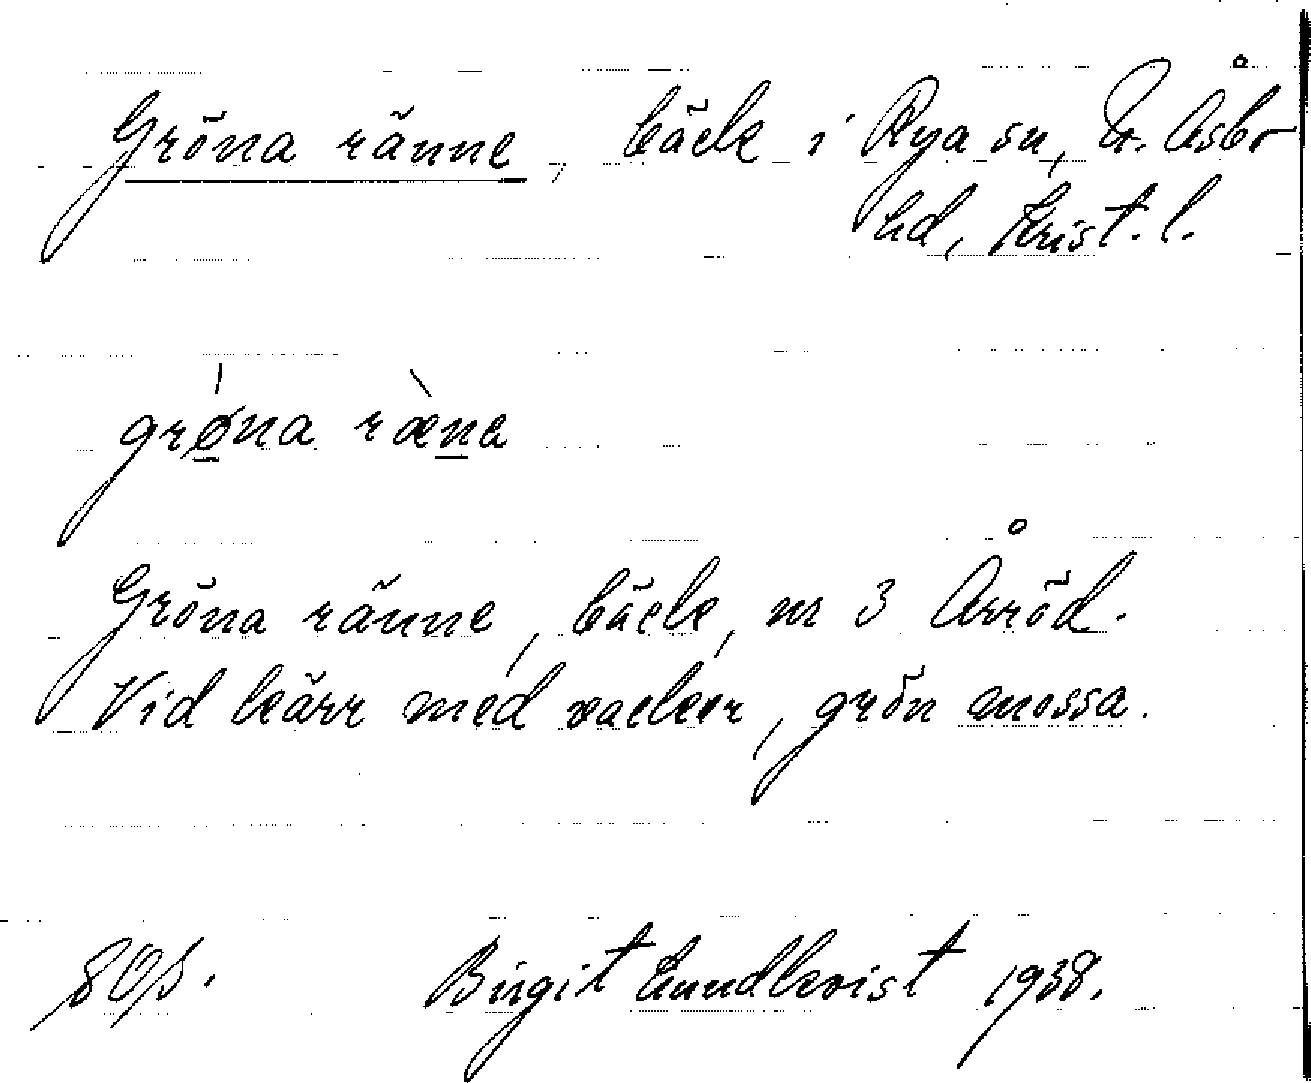 Gröna ränne, bäck i Rya sn, N. Åsbo
hd, Krist. l.
grø̱na ræṉa
Gröna ränne, bäck, nr 3 Årröd.
Vid kärr med vacker, grön mossa.
Birgit Lundkvist 1938.